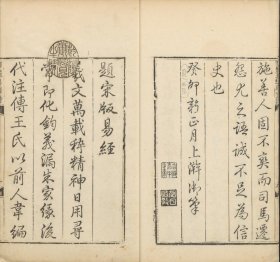 施善人固不爽而司馬遷
怨尤之語誠不足為信
史也
癸卯新正月上澣御筆
題宋版易經
羲文萬載粹精神日用尋
常即化鈞義漏朱家緣後
代注傳王氏以前人韋編